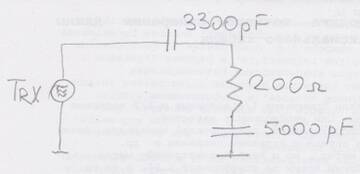 3300pF
200Ω
TRX
5000pF